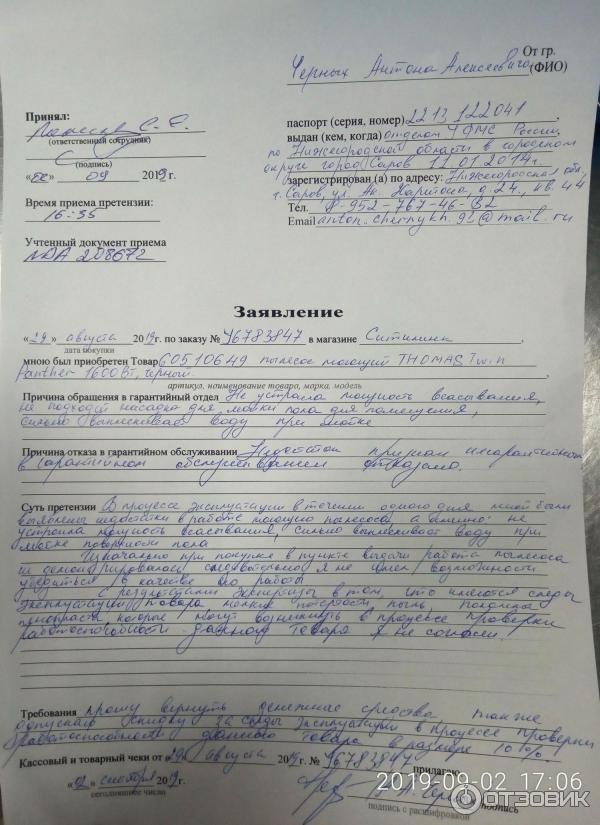 От гр.
Черных Антона Алексеевича (ФИО)
Принял:
(ответственный сотрудник)
(подпись)
«02» 09 2019г.
Время приема претензии:
16:35
Учтенный документ приема
NDA 208672
паспорт (серия, номер) 2213 122041
выдан (кем, когда) отделом УФМС России
по Нижегородской области в городском
округе город Саров 11.01.2014г.
зарегистрирован (а) по адресу: Нижегородская обл,
г. Саров, ул. Ак. Харитона, д. 24, кв. 44
Тел. 8-952-767-46-82
Email anton.chernykh.92@mail.ru
Заявление
«29» августа 2019г. по заказу № Y6783847 в магазине Ситилинк
дата покупки
мною был приобретен Товар 60510649 пылесос моющий THOMAS Twin
Panther 1600Вт, черный
артикул, наименование товара, марка, модель
Причина обращения в гарантийный отдел Не устроила мощность всасывания,
не подходит насадка для мойки пола для помещения,
сильно выплескивает воду при мойке
Причина отказа в гарантийном обслуживании Недостаток признан негарантийным
в гарантийном обслуживании отказано.
Суть претензии В процессе эксплуатации в течении одного дня мной были
выявлены недостатки в работе моющего пылесоса, а именно: не
устроила мощность всасывания, сильно выплескивает воду при
мойке поверхности пола
Изначально при покупке в пункте выдачи работа пылесоса
не демонстрировалась следовательно я не имел возможности
убедиться в качестве его работы
С результатами экспертизы в том, что имеются следы
эксплуатации товара мелкие потертости, пыль,
которые могут возникнуть в процессе проверки
работоспособности данного товара я не согласен.
Требования прошу вернуть денежные средства, также
допускаю скидку за следы эксплуатации в процессе проверки
работоспособности данного товара в размере 10%.
Кассовый и товарный чеки от «29» августа 2019г. № Y6783847 прилагаю
«02» сентября 2019г.
сегодняшнее число
подпись с расшифровкой
подпись
2019-09-02 17:06
ОТЗОВИК